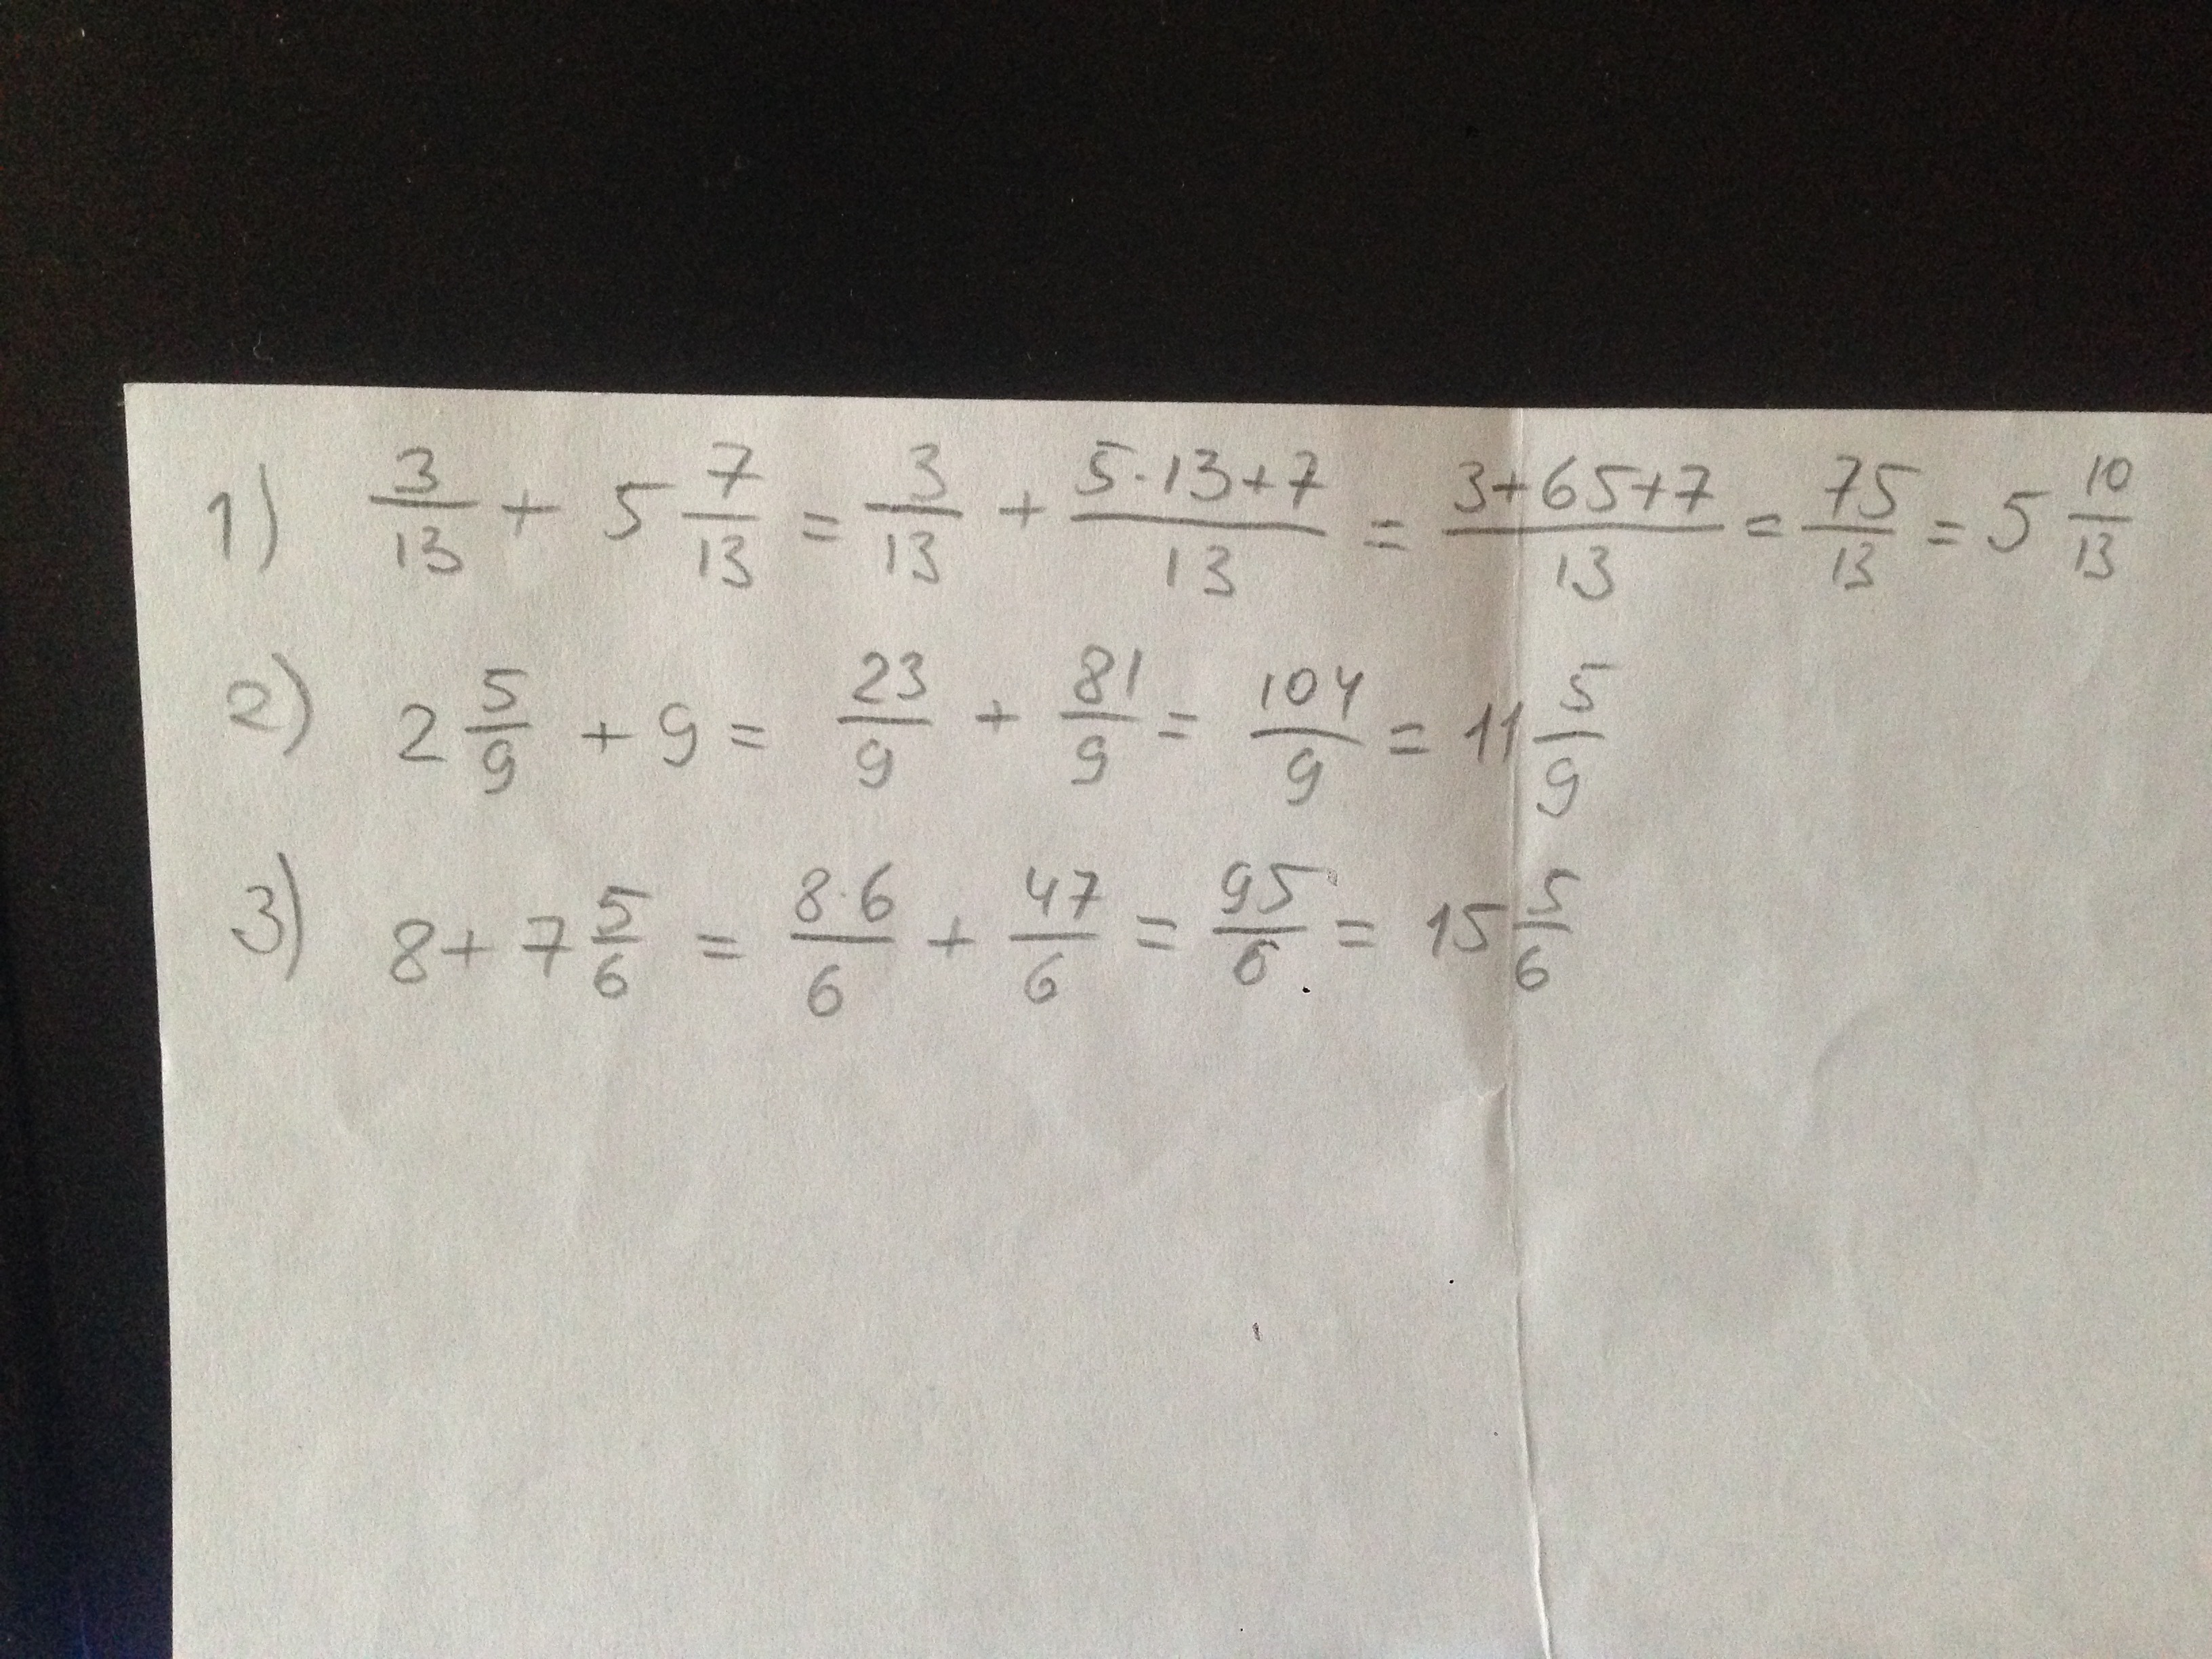 1) 3/13 + 5 7/13 = 3/13 + (5·13+7)/13 = (3+65+7)/13 = 75/13 = 5 10/13
2) 2 5/9 + 9 = 23/9 + 81/9 = 104/9 = 11 5/9
3) 8 + 7 5/6 = (8·6)/6 + 47/6 = 95/6 = 15 5/6